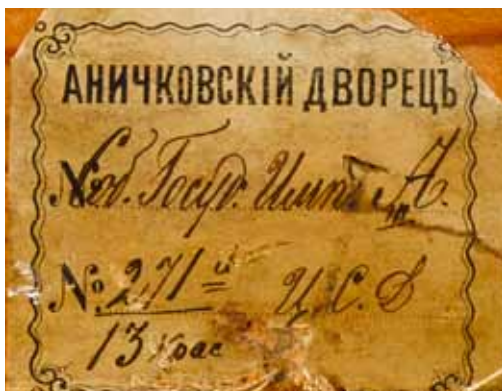 АНИЧКОВСКІЙ ДВОРЕЦЪ
Соб. Госуд. Имп. А. III
№ 271й Ц. С. Д
13 крас